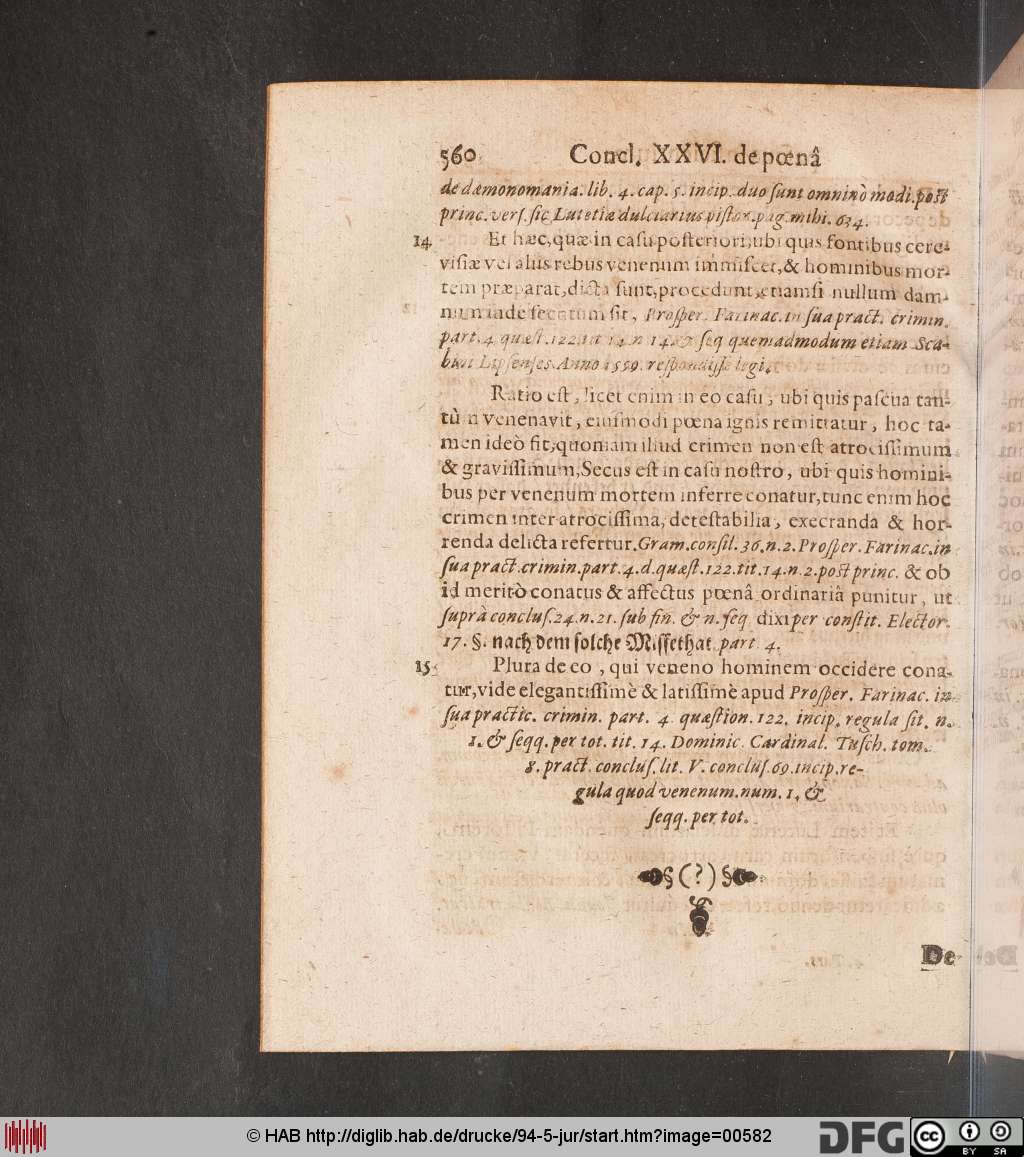 560 Concl. XXVI. de pœnâ
de dæmonomania. lib. 4. cap. 5. incip. duo sunt omninò modi. post
princ. vers. sic Lutetiæ dulciarius pistor. pag. mihi. 634.
14 Et hæc, quæ in casu posteriori, ubi quis fontibus cere-
visiæ vel aliis rebus venenum immiscet, & hominibus mor-
tem præparat, dicta sunt, procedunt, etiamsi nullum dam-
num inde secutum sit, Prosper. Farinac. in sua pract. crimin.
part. 4. quæst. 122. tit. 14. n. 14. & seq. quemadmodum etiam Sca-
bini Lipsenses. Anno 1559. respondisse legi.
Ratio est, licet enim in eo casu, ubi quis pascua tan-
tùm venenavit, eiusmodi pœna ignis remittatur, hoc ta-
men ideò fit, quoniam illud crimen non est atrocissimum
& gravissimum, Secus est in casu nostro, ubi quis homini-
bus per venenum mortem inferre conatur, tunc enim hoc
crimen inter atrocissima, detestabilia, execranda & hor-
renda delicta refertur. Gram. consil. 36. n. 2. Prosper. Farinac. in
sua pract. crimin. part. 4. d. quæst. 122. tit. 14. n. 2. post princ. & ob
id meritò conatus & affectus pœnâ ordinariâ punitur, ut
suprà conclus. 24. n. 21. sub fin. & n. seq. dixi per constit. Elector.
17. §. nach dem solche Missethat part. 4.
15. Plura de eo, qui veneno hominem occidere cona-
tur, vide elegantissimè & latissimè apud Prosper. Farinac. in
sua practic. crimin. part. 4. quæstion. 122. incip. regula sit. n.
1. & seqq. per tot. tit. 14. Dominic. Cardinal. Tusch. tom.
8. pract. conclus. lit. V. conclus. 69. incip. re-
gula quod venenum. num. 1. &
seqq. per tot.
§(?)§
De
© HAB http://diglib.hab.de/drucke/94-5-jur/start.htm?image=00582
DFG cc BY SA